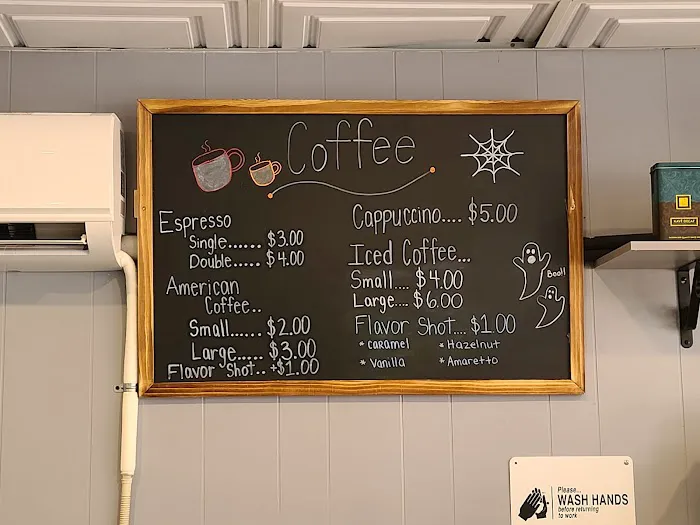 Coffee
Espresso
Single...... $3.00
Double..... $4.00
American
Coffee..
Small...... $2.00
Large..... $3.00
Flavor Shot.. +$1.00
Cappuccino.... $5.00
Iced Coffee...
Small.... $4.00
Large.... $6.00
Flavor Shot.... $1.00
* Caramel * Hazelnut
* Vanilla * Amaretto
Boo!!
Please...
WASH HANDS
before returning
to work